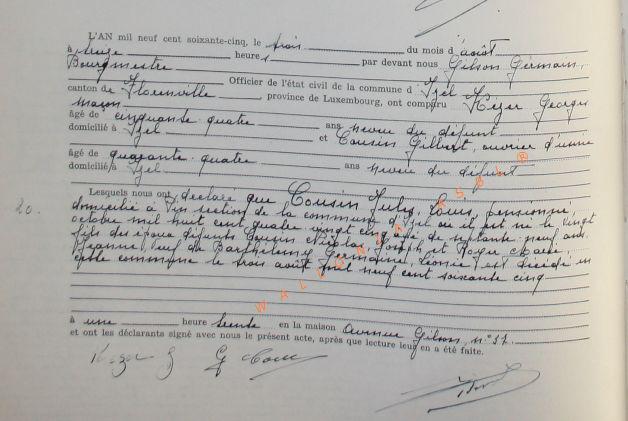 L'AN mil neuf cent soixante-cinq, le trois du mois d'août
à seize heures, par devant nous Gilson Germain,
Bourgmestre Officier de l'état civil de la commune d'Izel
canton de Florenville, province de Luxembourg, ont comparu Georges
maçon
âgé de cinquante quatre ans neveu du défunt
domicilié à Izel et Cousin Gilbert, ouvrier d'usine
âgé de quarante quatre ans neveu du défunt
domicilié à Izel
Lesquels nous ont déclaré que Cousin Jules, Louis, pensionné,
20. domicilié à section de la commune d'Izel où il est né le vingt
octobre mil huit cent quatre vingt cinq âgé de septante neuf ans
fils des époux défunts Cousin Nicolas Joseph et Marie
Jeanne, veuf de Barthélemy Germaine, Léonie est décédé en
cette commune le trois août mil neuf cent soixante cinq
à une heure trente en la maison Avenue Gilson, n° 37
et ont les déclarants signé avec nous le présent acte, après que lecture leur en a été faite.
WALLONIA ASBL ®